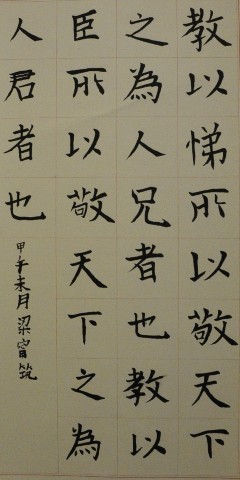 教以悌所以敬天下
之為人兄者也教以
臣所以敬天下之為
人君者也
甲午未月梁筑